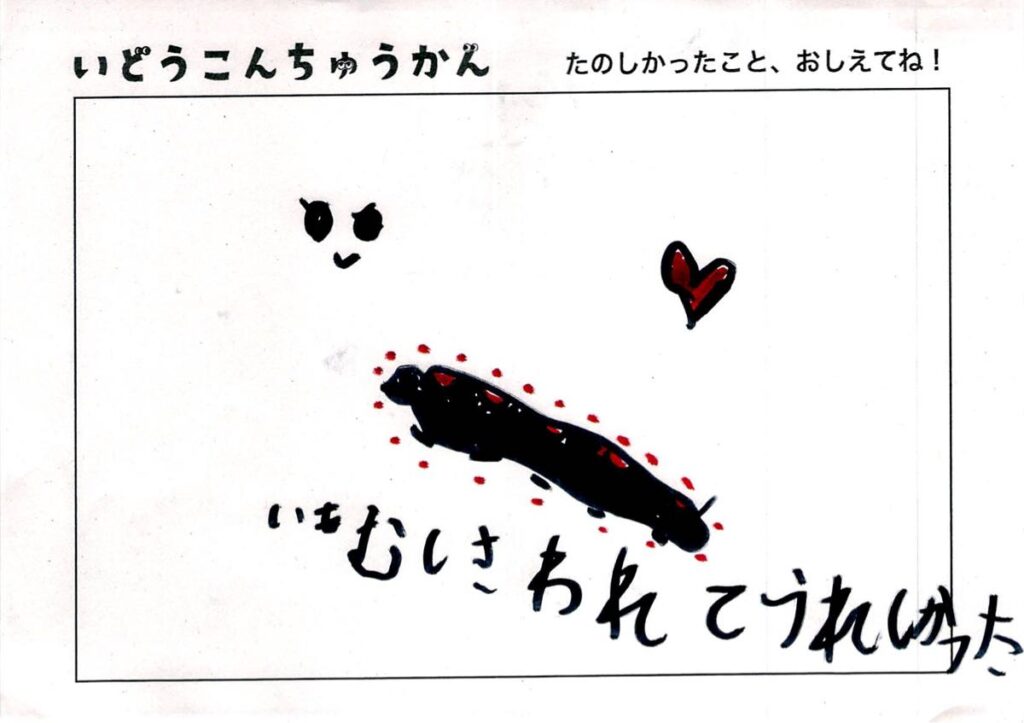 いどうこんちゅうかん
たのしかったこと、おしえてね！
いもむしさわれてうれしかった